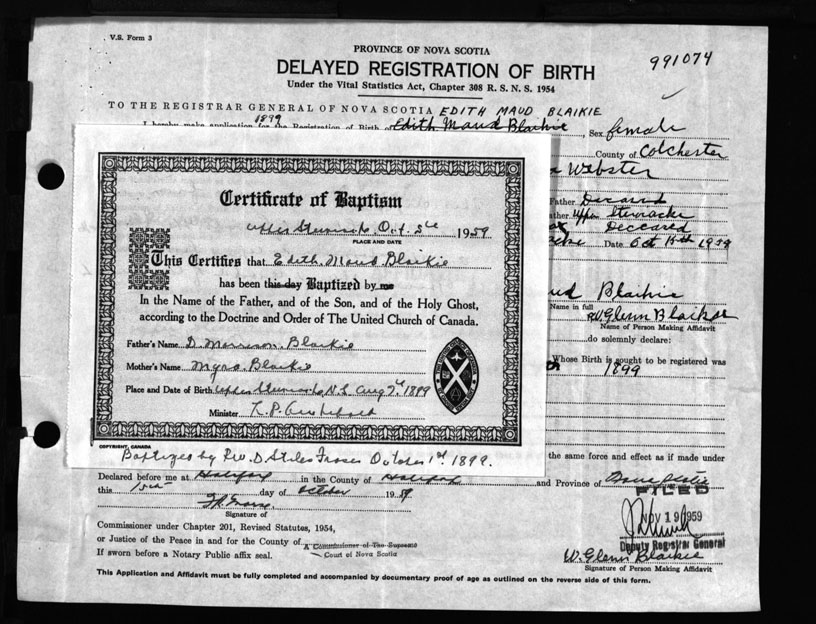 V.S. Form 3
PROVINCE OF NOVA SCOTIA
991074
DELAYED REGISTRATION OF BIRTH
Under the Vital Statistics Act, Chapter 308 R. S. N. S. 1954
TO THE REGISTRAR GENERAL OF NOVA SCOTIA EDITH MAUD BLAIKIE
1899
I hereby make application for the Registration of Birth of Edith Maud Blaikie, Sex female
County of Colchester
Webster
Father Deceased
Upper Stewiacke
Deceased
Date Oct 15th 1959
Certificate of Baptism
Upper Stewiacke, Oct. 1959
PLACE AND DATE
This Certifies that Edith Maud Blaikie
has been this day Baptized by me
In the Name of the Father, and of the Son, and of the Holy Ghost,
according to the Doctrine and Order of The United Church of Canada.
Father's Name D. Morrison Blaikie
Mother's Name Myra Blaikie
Place and Date of Birth Upper Stewiacke N.S. Aug 7th 1899
Minister
COPYRIGHT, CANADA
Baptized by Rev. D. Stiles Fraser October 1st 1899.
Blaikie
Name in full
W. Glenn Blaikie
Name of Person Making Affidavit
do solemnly declare:
Whose Birth is sought to be registered was
1899
the same force and effect as if made under
Declared before me at Halifax in the County of Halifax and Province of Nova Scotia
this day of October 1959
Signature of
FILED
NOV 19 1959
Deputy Registrar General
Commissioner under Chapter 201, Revised Statutes, 1954,
or Justice of the Peace in and for the County of A Commissioner of The Supreme
Court of Nova Scotia
If sworn before a Notary Public affix seal.
W. Glenn Blaikie
Signature of Person Making Affidavit
This Application and Affidavit must be fully completed and accompanied by documentary proof of age as outlined on the reverse side of this form.